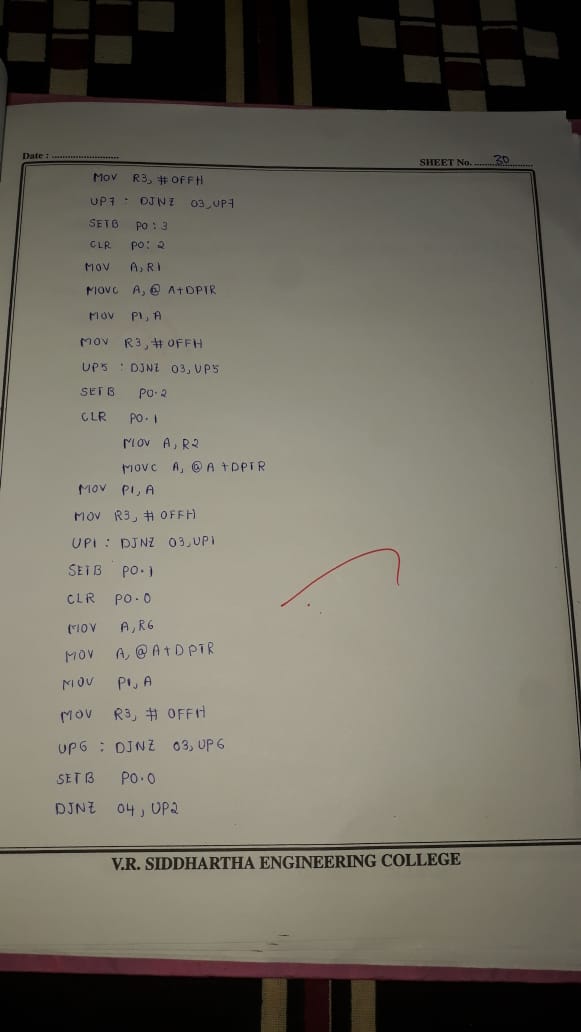 Date : ..........................
SHEET No. ....30....
MOV R3, # OFFH
UP7 : DJNZ 03, UP7
SETB P0 : 3
CLR P0 : 2
MOV A, R1
MOVC A, @ A+DPTR
MOV P1, A
MOV R3, # OFFH
UP5 : DJNZ 03, UP5
SETB P0.2
CLR P0.1
MOV A, R2
MOVC A, @ A+DPTR
MOV P1, A
MOV R3, # OFFH
UP1 : DJNZ 03, UP1
SETB P0.1
CLR P0.0
MOV A, R6
MOV A, @ A+DPTR
MOV P1, A
MOV R3, # OFFH
UP6 : DJNZ 03, UP6
SETB P0.0
DJNZ 04, UP2
V.R. SIDDHARTHA ENGINEERING COLLEGE